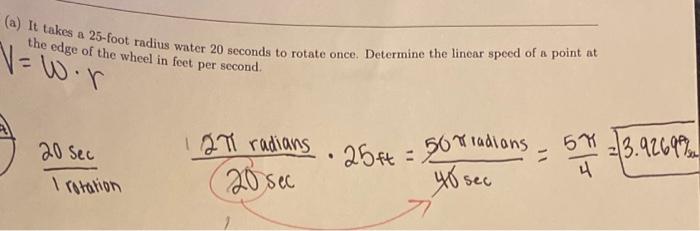 (a) It takes a 25-foot radius water 20 seconds to rotate once. Determine the linear speed of a point at
the edge of the wheel in feet per second.
V = W · r
20 sec / 1 rotation
2π radians / 20 sec · 25 ft = 50 π radians / 40 sec = 5π / 4 = 3.9269